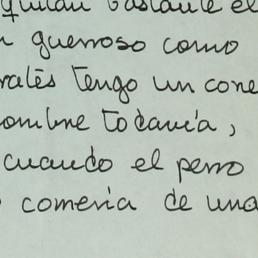 quitan bastante el
n guerroso como
rates tengo un cone
ombre todavía,
cuando el perro
comeria de una